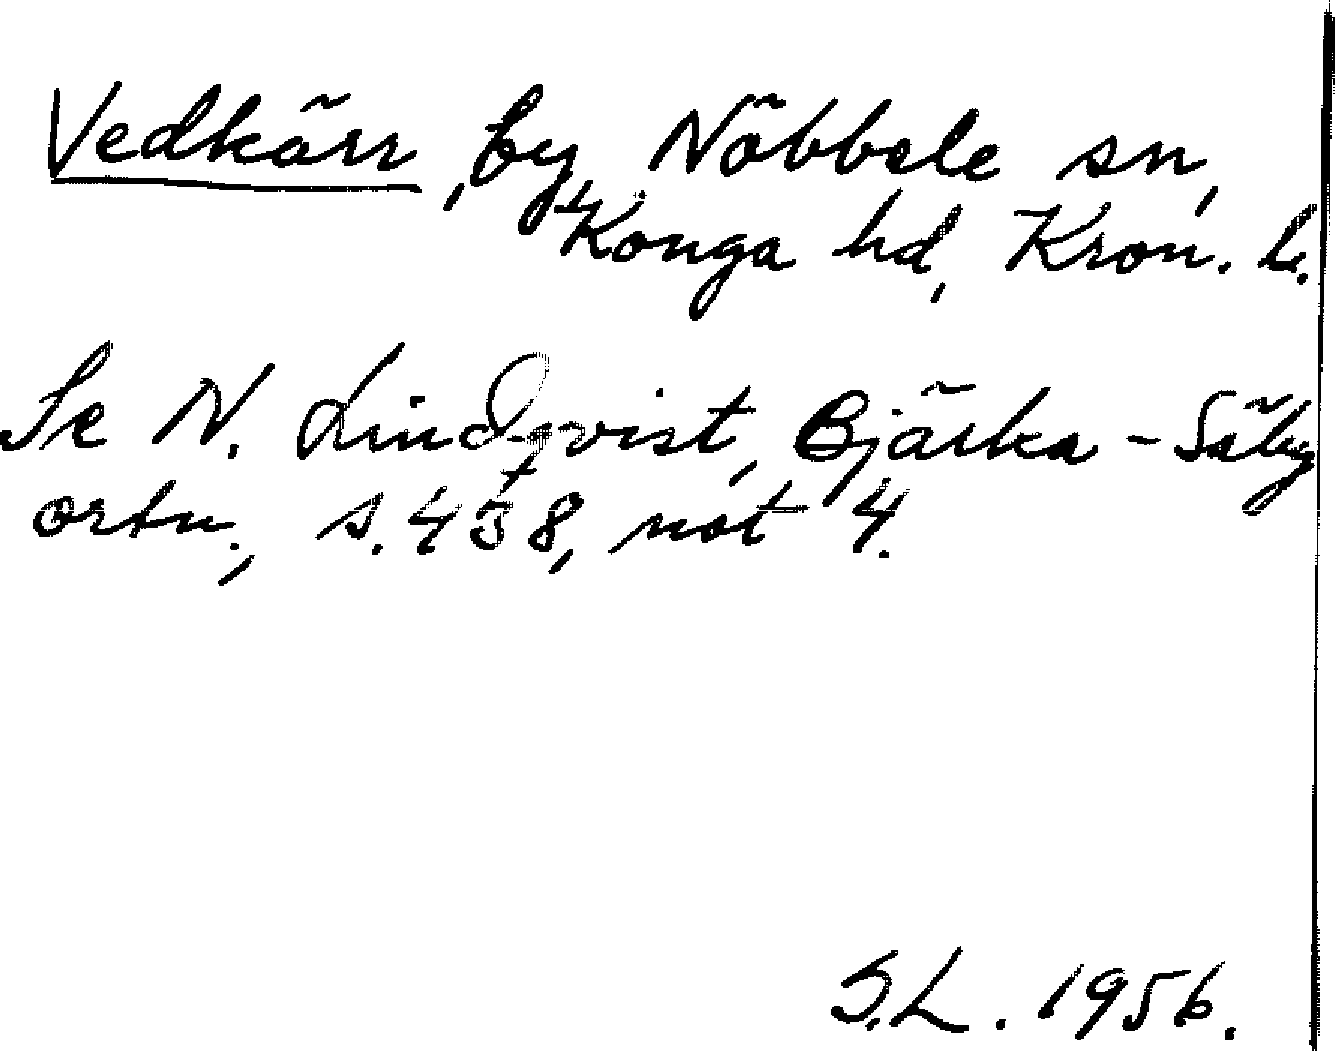 Vedkärr, by, Nöbbele sn,
Konga hd, Kron. l.
Se N. Lindqvist, Bjärka-Säby
ortn., s. 438, not 4.
S.L. 1956.